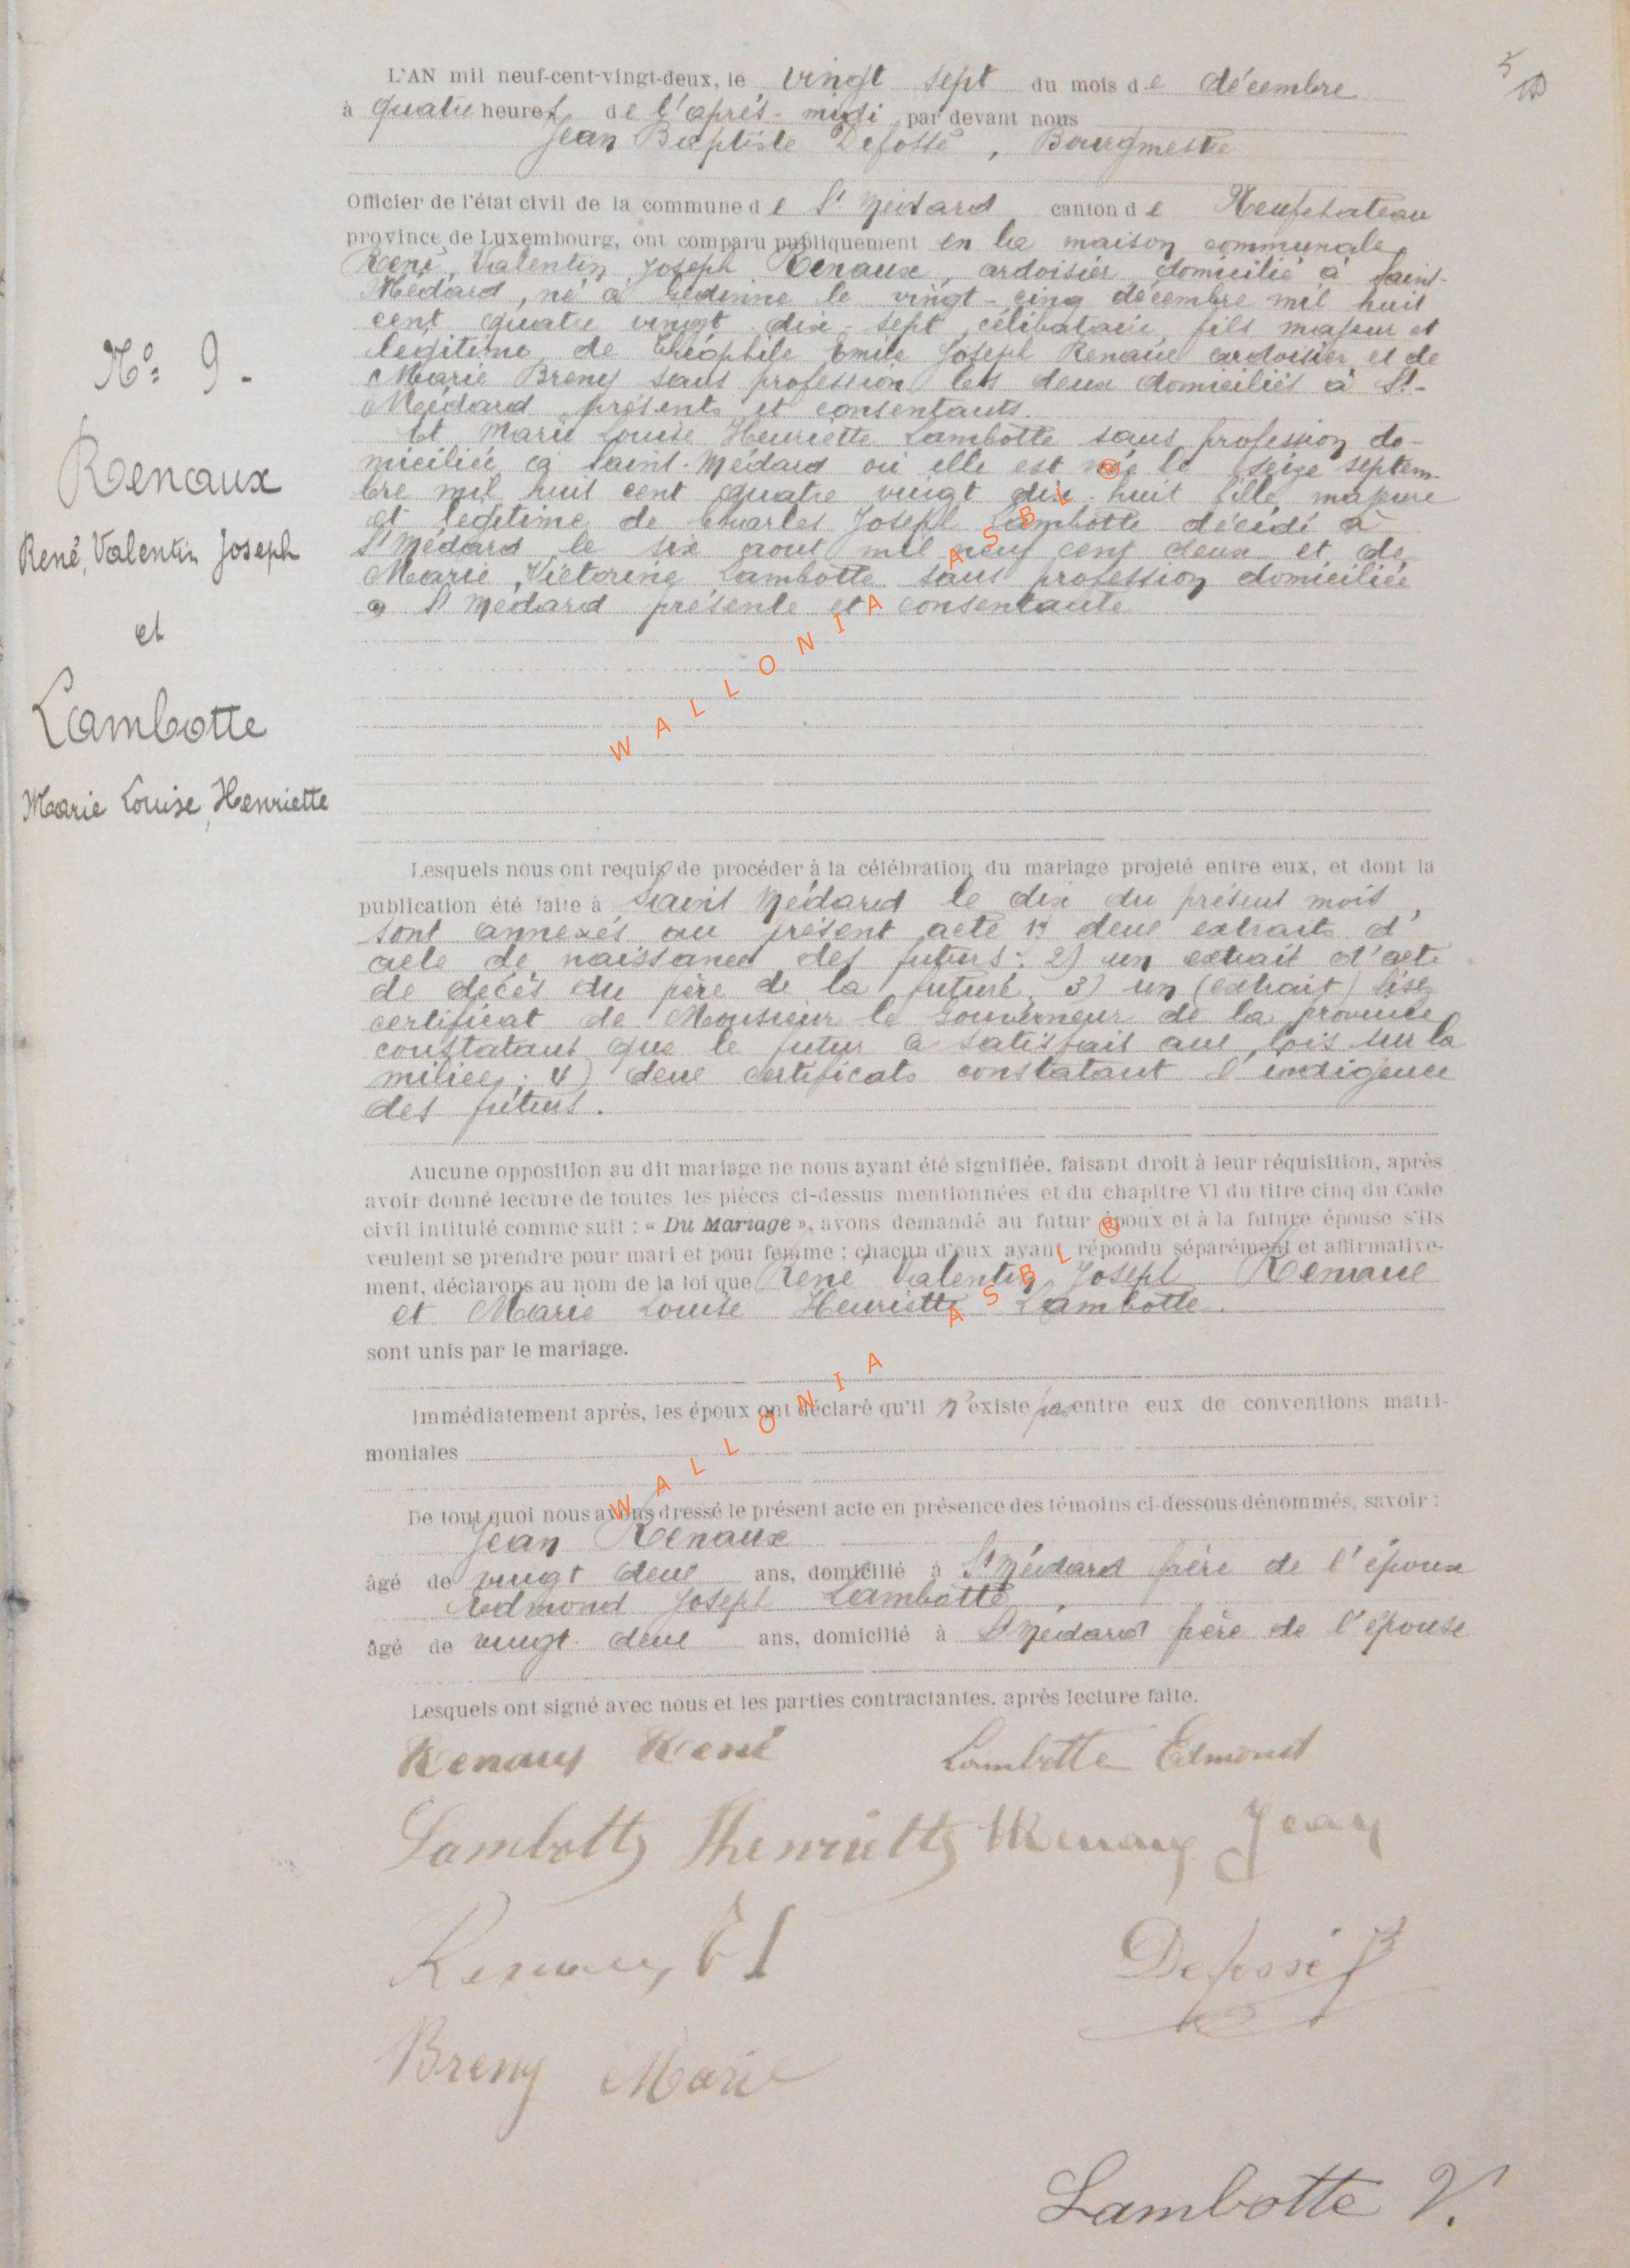 N° 9.
Renaux
René, Valentin Joseph
et
Lambotte
Marie Louise, Henriette
5
L'AN mil neuf-cent-vingt-deux, le vingt sept du mois de décembre
à quatre heures de l'après-midi par devant nous
Jean Baptiste Defossé, Bourgmestre
Officier de l'état civil de la commune de St Médard canton de Neufchateau
province de Luxembourg, ont comparu publiquement en la maison communale
René, Valentin Joseph Renaux, ardoisier domicilié à Saint-
Médard, né à Gedinne le vingt-cinq décembre mil huit
cent quatre vingt dix-sept, célibataire, fils majeur et
légitime de Théophile Emile Joseph Renaux ardoisier et de
Marie Breny sans profession les deux domiciliés à St-
Médard présents et consentants.
Et Marie Louise Henriette Lambotte sans profession do-
miciliée à Saint-Médard où elle est née le seize septem-
bre mil huit cent quatre vingt dix-huit fille majeure
et légitime de Charles Joseph Lambotte décédé à
St Médard le six aout mil neuf cent deux et de
Marie Victorine Lambotte sans profession domiciliée
à St Médard présente et consentante
WALLONIA ASBL ®
Lesquels nous ont requis de procéder à la célébration du mariage projeté entre eux, et dont la
publication été faite à Saint Médard le dix du présent mois,
sont annexés au présent acte 1) deux extraits d'
acte de naissance des futurs: 2) un extrait d'acte
de décès du père de la future. 3) un (extrait) lisez
certificat de Monsieur le Gouverneur de la province
constatant que le futur a satisfait aux lois sur la
milice; 4) deux certificats constatant l'indigence
des futurs.
Aucune opposition au dit mariage ne nous ayant été signifiée, faisant droit à leur réquisition, après
avoir donné lecture de toutes les pièces ci-dessus mentionnées et du chapitre VI du titre cinq du Code
civil intitulé comme suit : « Du Mariage », avons demandé au futur époux et à la future épouse s'ils
veulent se prendre pour mari et pour femme ; chacun d'eux ayant répondu séparément et affirmative-
ment, déclarons au nom de la loi que René Valentin Joseph Renaux
et Marie Louise Henriette Lambotte.
sont unis par le mariage.
WALLONIA ASBL ®
Immédiatement après, les époux ont déclaré qu'il n'existe pas entre eux de conventions matri-
moniales
De tout quoi nous avons dressé le présent acte en présence des témoins ci-dessous dénommés, savoir :
Jean Renaux
âgé de vingt deux ans, domicilié à St Médard frère de l'époux
Edmond Joseph Lambotte,
âgé de vingt deux ans, domicilié à St Médard frère de l'épouse
Lesquels ont signé avec nous et les parties contractantes, après lecture faite.
Renaux René Lambotte Edmond
Lambotte Henriette Renaux Jean
Renaux Defossé
Breny Marie
Lambotte V.